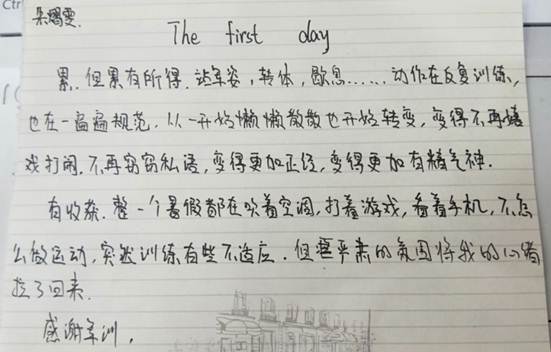 朵囑雯.
The first day
累.但累有所得.站军姿,转体,歇息……动作在反复训练,
也在一遍遍规范.从一开始懒懒散散也开始转变,变得不再嬉
戏打闹.不再窃窃私语,变得更加正经,变得更加有精气神.
有收获.整一个暑假都在吹着空调,打着游戏,看着手机,不怎
么做运动,突然训练有些不适应.但严肃的氛围将我的心绪
拉了回来.
感谢军训.
Ctr